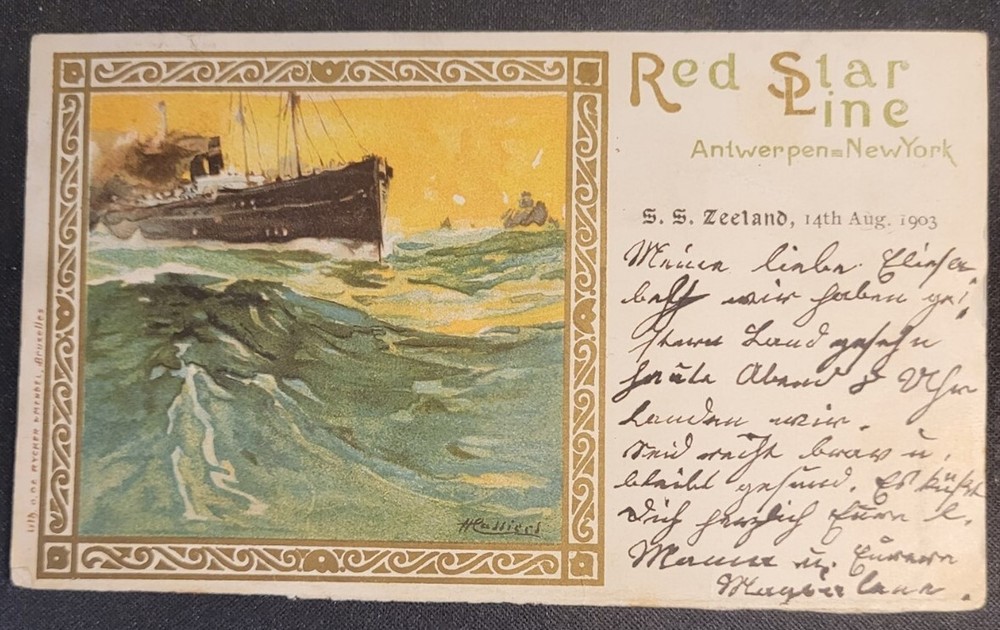 Red Star
Line
Antwerpen=New York
S. S. Zeeland, 14th Aug. 1903
Meine liebe Eliesa
beth wir haben ge
stern Land gesehn
heute Abend 8 Uhr
landen wir.
Seid recht brav u.
bleibt gesund. Es küßt
Dich herzlich Eure l.
Mama u.
H. Cassiers
Lith. O. DE RYCKER & MENDEL, Bruxelles